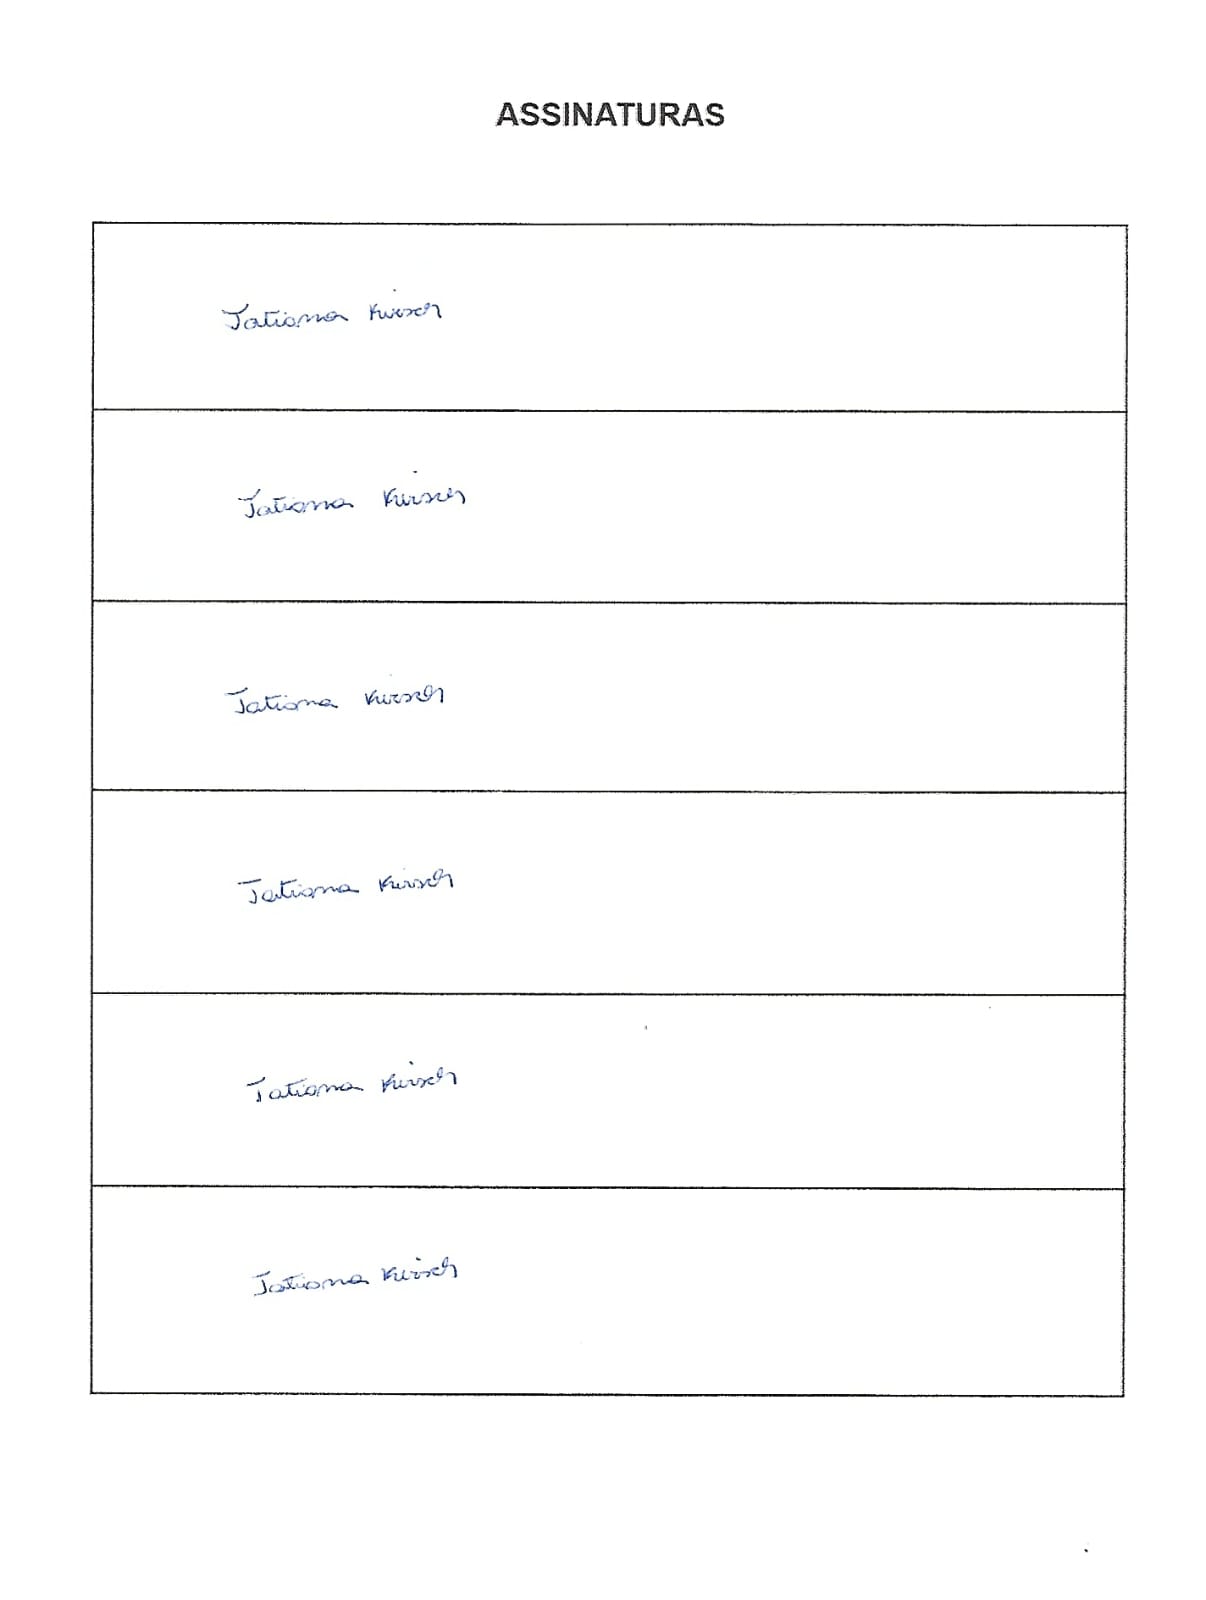 ASSINATURAS
Tatiana Kirsch
Tatiana Kirsch
Tatiana Kirsch
Tatiana Kirsch
Tatiana Kirsch
Tatiana Kirsch